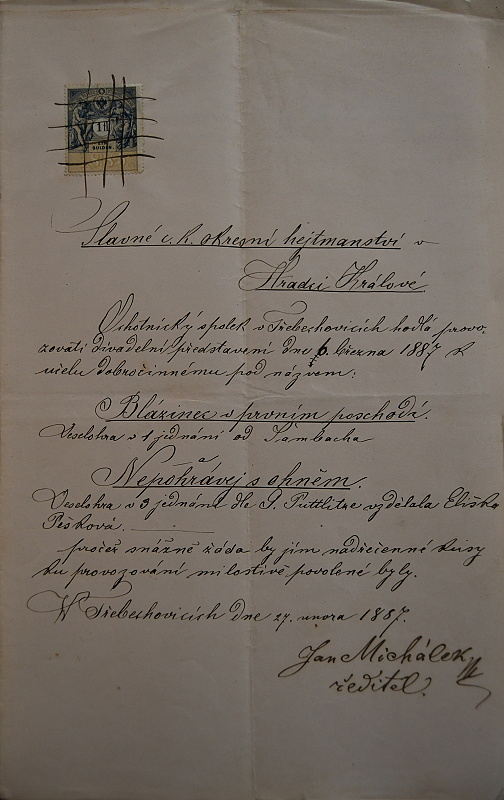 1 fl
GULDEN.
Slavné c. k. okresní hejtmanství v
Hradci Králové.
Ochotnický spolek v Třebechovicích hodlá provo-
zovati divadelní představení dne 6. března 1887 k
účelu dobročinnému pod názvem:
Blázinec v prvním poschodí.
Veselohra v 1 jednání od Šambacha
a
Nepohrávej s ohněm.
Veselohra v 3 jednání dle G. Puttlitze vzdělala Eliška
Pešková.
pročež snážně žádá by jim nadřečenné kusy
ku provozování milostivě povolené byly.
V Třebechovicích dne 27. února 1887.
Jan Michálek
ředitel.